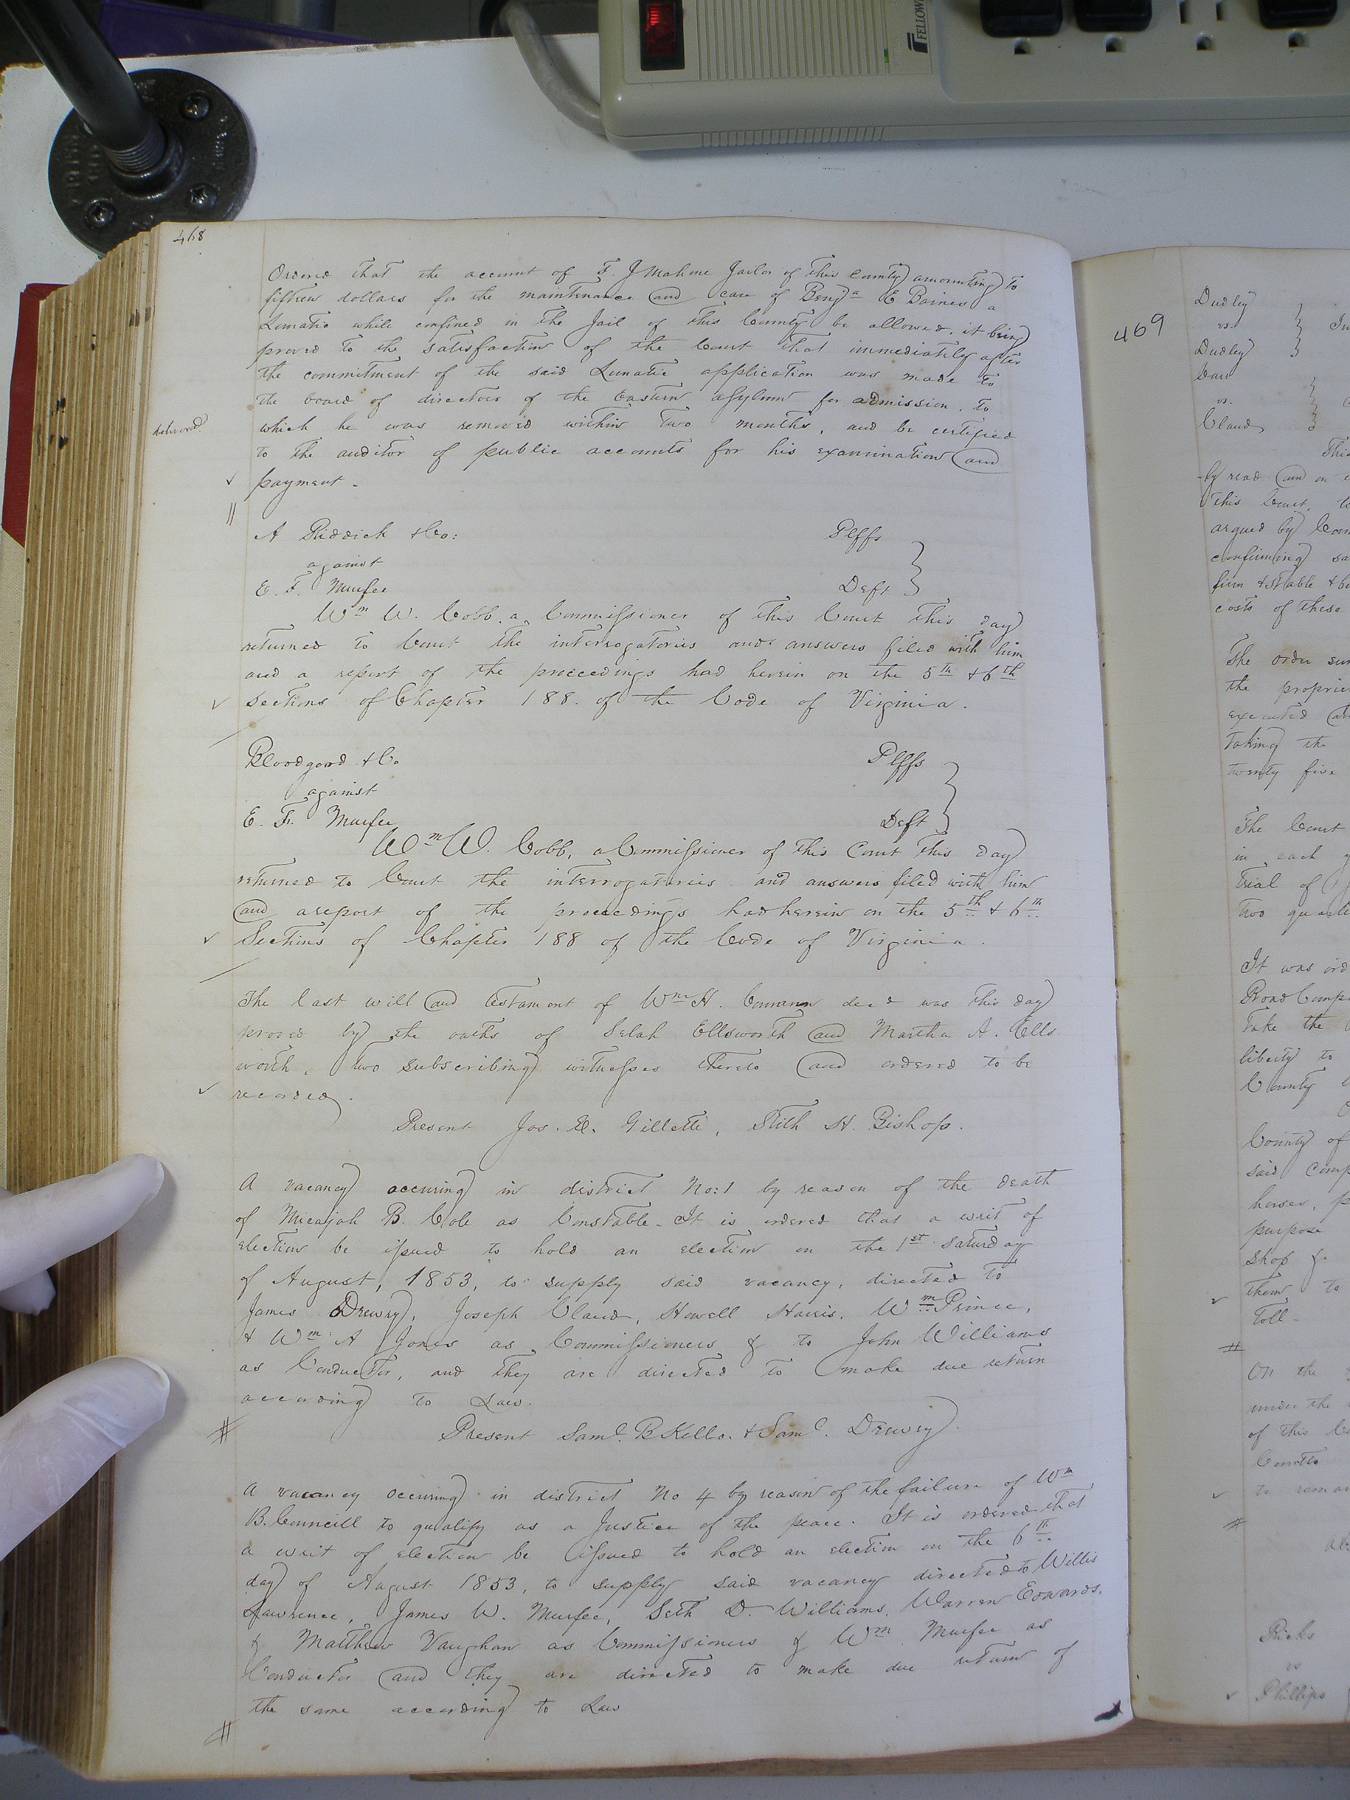 FELLOWES
468
Ordered that the account of F. J Mahone Jailor of this County amounting to
fifteen dollars for the maintenance and care of Benja E Barnes a
Lunatic while confined in the Jail of this County be allowed, it being
proved to the satisfaction of the Court that immediately after
the commitment of the said Lunatic application was made to
the board of directors of the Eastern asylum for admission, to
which he was removed within two months, and be certified
to the auditor of public accounts for his examination and
payment.
A Riddick & Co: Plffs
against
E. F. Murfee Deft
Wm W. Cobb, a Commissioner of this Court this day
returned to Court the interrogatories and answers filed with him
and a report of the proceedings had herein on the 5th & 6th
sections of Chapter 188. of the Code of Virginia.
Bloodgood & Co Plffs
against
E. F. Murfee Deft
Wm W. Cobb, a Commissioner of this Court this day
returned to Court the interrogatories and answers filed with him
and a report of the proceedings had herein on the 5th & 6th
Sections of Chapter 188 of the Code of Virginia.
The last will and testament of Wm H. decd was this day
proved by the oaths of Selah Ellsworth and Martha A. Ells
worth, two subscribing witnesses thereto and ordered to be
recorded.
Present Jos. E. Gillette, Stith H. Bishop.
A vacancy occuring in district No: 1 by reason of the death
of Micajah B. Cole as Constable. It is ordered that a writ of
election be issued to hold an election on the 1st Saturday
of August, 1853, to supply said vacancy, directed to
James Drewry, Joseph Claud, Howell Harris, Wm Prince,
& Wm A Jones as Commissioners & to John Williams
as Conductor, and they are directed to make due return
according to Law.
Present Saml. B Kello. & Saml. Drewry.
A vacancy occuring in district No 4 by reason of the failure of Wm
B. Councill to qualify as a Justice of the peace. It is ordered that
a writ of election be issued to hold an election on the 6th
day of August 1853, to supply said vacancy directed to Willis
Lawrence, James W. Murfee, Seth D. Williams, Warren Edwards,
& Matthew Vaughan as Commissioners & Wm Murfee as
Conductor and they are directed to make due return of
the same according to Law
469
Dudley
vs.
Dudley
vs.
Claud
by read and on
this Court,
argued by
confirming
firm & stable &
costs of these
The order
the
executed
taking the
twenty five
The Court
in each
trial of
two
It was
Road
take the
liberty to
County
County of
said
horses,
purpose
shop &
them to
Toll.
On the
under the
of this
to
Ricks
vs
Phillips